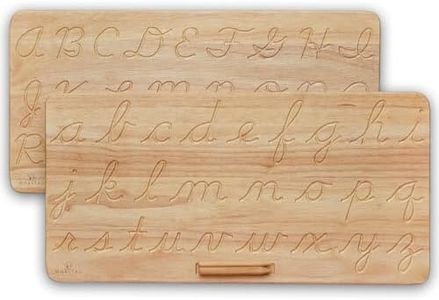 A B C D E F G H I
J K L M N O P Q
R
a b c d e f g h i
j k l m n o p q
r s t u v w x y z